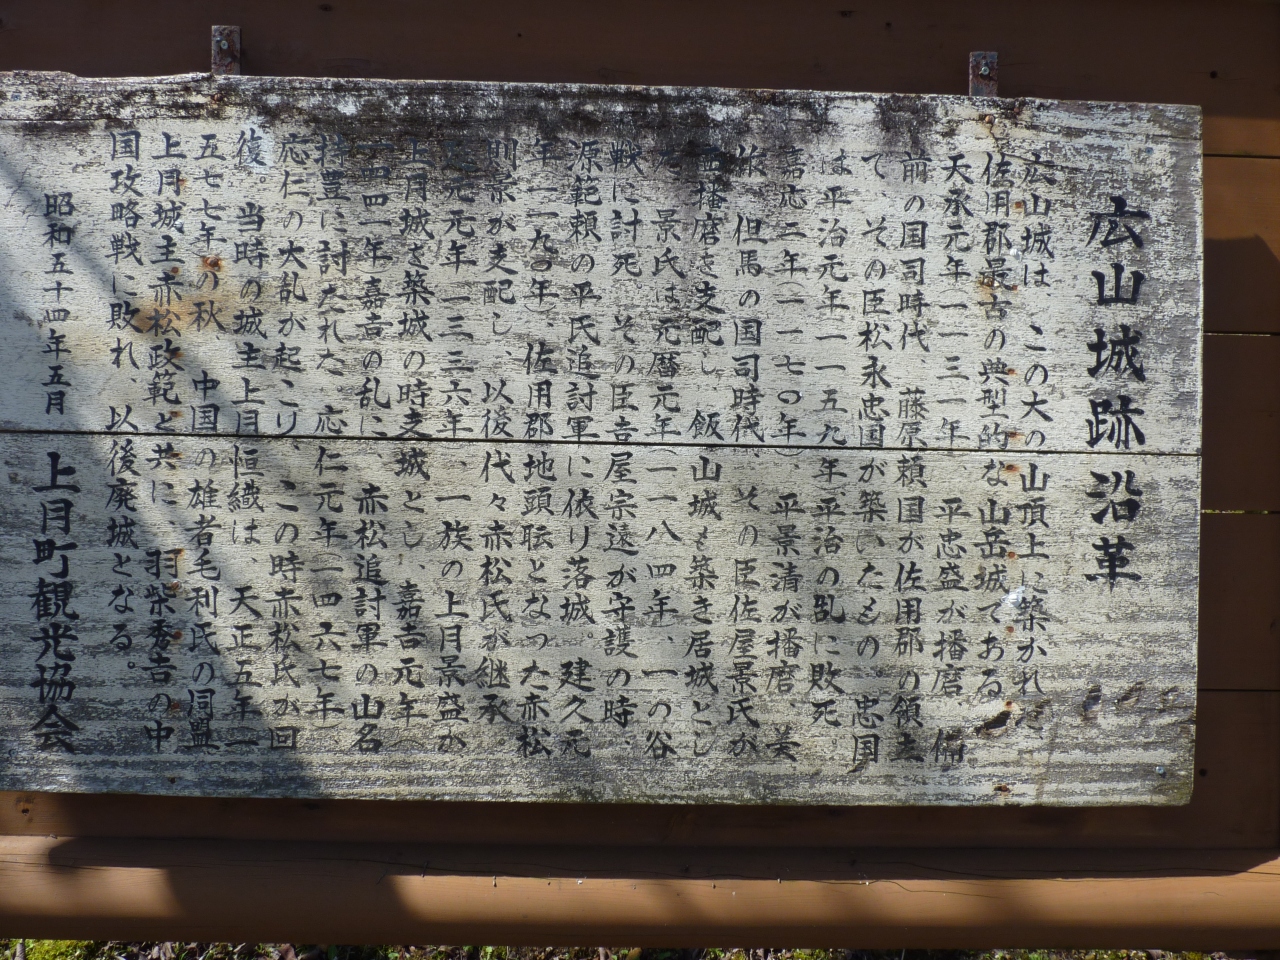 広山城跡沿革
広山城は、この大の山頂上に築かれた
佐用郡最古の典型的な山岳城である
天承元年一一三一年、平忠盛が播磨、備
前の国司時代、藤原頼国が佐用郡の領主
で その臣松永忠国が築いたもの。忠国
は平治元年一一五九年、平治の乱に敗死
嘉応二年(一一七〇年)、平景清が播磨、美
作、但馬の国司時代、その臣佐屋景氏が
西播磨を支配し、飯山城も築き居城とし
た 景氏は元暦元年(一一八四年、一の谷
戦に討死。その臣吉屋宗遠が守護の時、
源範頼の平氏追討軍に依り落城。建久元
年(一一九〇年)、佐用郡地頭職となった赤松
則景が支配し、以後代々赤松氏が継承
延元元年(一三三六年)、一族の上月景盛が
上月城を築城の時支城とし、嘉吉元年(
一四四一年)嘉吉の乱に、赤松追討軍の山名
持豊に討たれた 応仁元年(一四六七年)
応仁の大乱が起こり、この時赤松氏が回
復。当時の城主上月恒織は、天正五年(一
五七七年の秋、中国の雄者毛利氏の同盟
上月城主赤松政範と共に、羽柴秀吉の中
国攻略戦に敗れ、以後廃城となる。
昭和五十四年五月 上月町観光協会